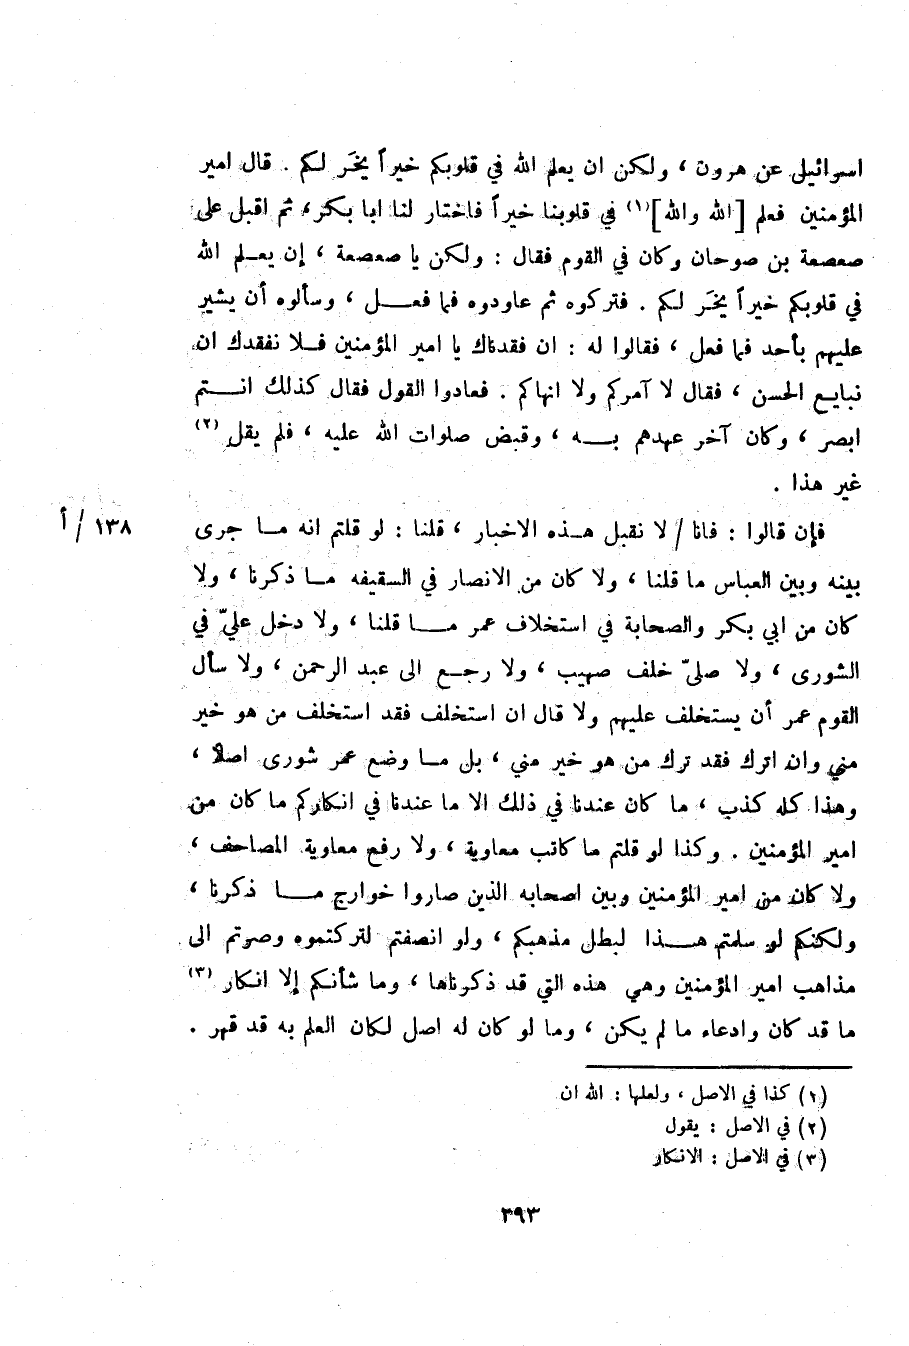 اسرائيل عن هرون ، ولكن ان يعلم الله في قلوبكم خيراً يَخَر لكم . قال امير
المؤمنين فعلم [الله والله](١) في قلوبنا خيراً فاختار لنا ابا بكر، ثم اقبل على
صعصعة بن صوحان وكان في القوم فقال : ولكن يا صعصعة ، إن يعلم الله
في قلوبكم خيراً يَخَر لكم . فتركوه ثم عاودوه فما فعل ، وسألوه أن يشير
عليهم بأحد فما فعل ، فقالوا له : ان فقدناك يا امير المؤمنين فلا نفقدك ان
نبايع الحسن ، فقال لا آمركم ولا انهاكم . فعادوا القول فقال كذلك انتم
ابصر ، وكان آخر عهدهم به ، وقبض صلوات الله عليه ، فلم يقل (٢)
غير هذا .
فإن قالوا : فانا / لا نقبل هذه الاخبار ، قلنا : لو قلتم انه ما جرى
١٣٨ / أ
بينه وبين العباس ما قلنا ، ولا كان من الانصار في السقيفه ما ذكرنا ، ولا
كان من ابي بكر والصحابة في استخلاف عمر ما قلنا ، ولا دخل عليّ في
الشورى ، ولا صلىّ خلف صهيب ، ولا رجع الى عبد الرحمن ، ولا سأل
القوم عمر أن يستخلف عليهم ولا قال ان استخلف فقد استخلف من هو خير
مني وان اترك فقد ترك من هو خير مني ، بل ما وضع عمر شورى اصلاً ،
وهذا كله كذب ، ما كان عندنا في ذلك الا ما عندنا في انكاركم ما كان من
امير المؤمنين . وكذا لو قلتم ما كاتب معاوية ، ولا رفع معاوية المصاحف ،
ولا كان من امير المؤمنين وبين اصحابه الذين صاروا خوارج ما ذكرنا ،
ولكنكم لو سلمتم هذا لبطل مذهبكم ، ولو انصفتم لتركتموه وصرتم الى
مذاهب امير المؤمنين وهي هذه التي قد ذكرناها ، وما شأنكم إلا انكار (٣)
ما قد كان وادعاء ما لم يكن ، وما لو كان له اصل لكان العلم به قد قهر .
(١) كذا في الاصل ، ولعلها : الله ان
(٢) في الاصل : يقول
(٣) في الاصل : الانكار
٢٩٣